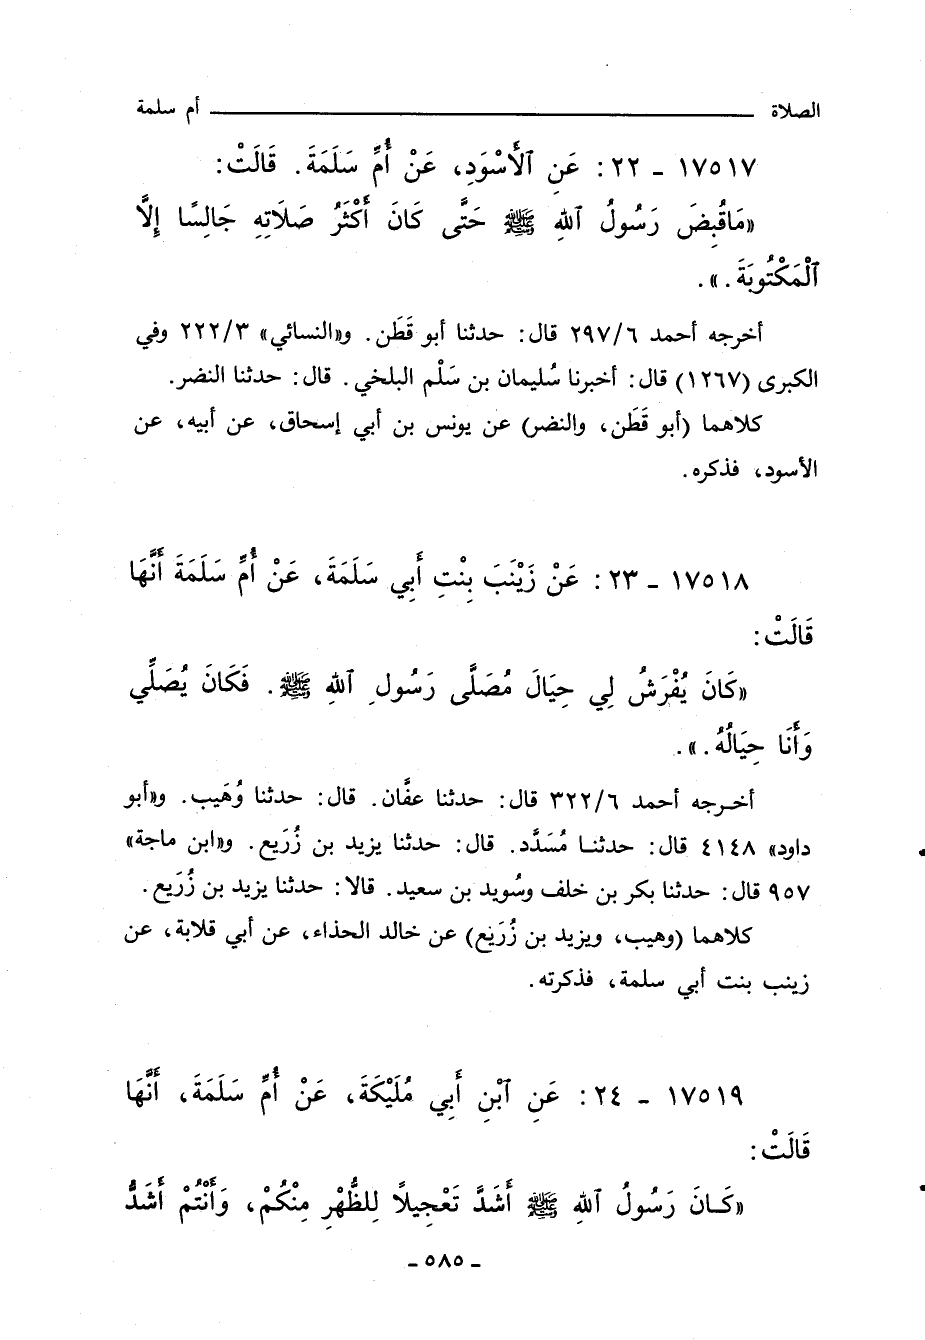 الصلاة ــــــــــــــــــــ أم سلمة
١٧٥١٧ ـ ٢٢ : عَنِ ٱلْأَسْوَدِ، عَنْ أُمِّ سَلَمَةَ. قَالَتْ:
«مَاقُبِضَ رَسُولُ ٱللهِ ﷺ حَتَّى كَانَ أَكْثَرُ صَلَاتِهِ جَالِسًا إِلَّا
ٱلْمَكْتُوبَةَ.».
أخرجه أحمد ٢٩٧/٦ قال: حدثنا أبو قَطَن. و«النسائي» ٢٢٢/٣ وفي
الكبرى (١٢٦٧) قال: أخبرنا سُليمان بن سَلْم البلخي. قال: حدثنا النضر.
كلاهما (أبو قَطَن، والنضر) عن يونس بن أبي إسحاق، عن أبيه، عن
الأسود، فذكره.
١٧٥١٨ ـ ٢٣ : عَنْ زَيْنَبَ بِنْتِ أَبِي سَلَمَةَ، عَنْ أُمِّ سَلَمَةَ أَنَّهَا
قَالَتْ:
«كَانَ يُفْرَشُ لِي حِيَالَ مُصَلَّى رَسُولِ ٱللهِ ﷺ. فَكَانَ يُصَلِّي
وَأَنَا حِيَالُهُ.».
أخرجه أحمد ٣٢٢/٦ قال: حدثنا عفَّان. قال: حدثنا وُهَيب. و«أبو
داود» ٤١٤٨ قال: حدثنا مُسَدَّد. قال: حدثنا يزيد بن زُرَيع. و«ابن ماجة»
٩٥٧ قال: حدثنا بكر بن خلف وسُويد بن سعيد. قالا: حدثنا يزيد بن زُرَيع.
كلاهما (وهيب، ويزيد بن زُرَيَع) عن خالد الحذاء، عن أبي قلابة، عن
زينب بنت أبي سلمة، فذكرته.
١٧٥١٩ ـ ٢٤ : عَنِ ٱبْنِ أَبِي مُلَيْكَةَ، عَنْ أُمِّ سَلَمَةَ، أَنَّهَا
قَالَتْ:
«كَانَ رَسُولُ ٱللهِ ﷺ أَشَدَّ تَعْجِيلاً لِلظُّهْرِ مِنْكُمْ، وَأَنْتُمْ أَشَدُّ
ـ ٥٨٥ ـ